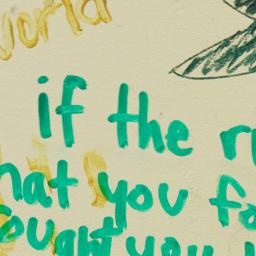 world
if the r
hat you fo
ought you